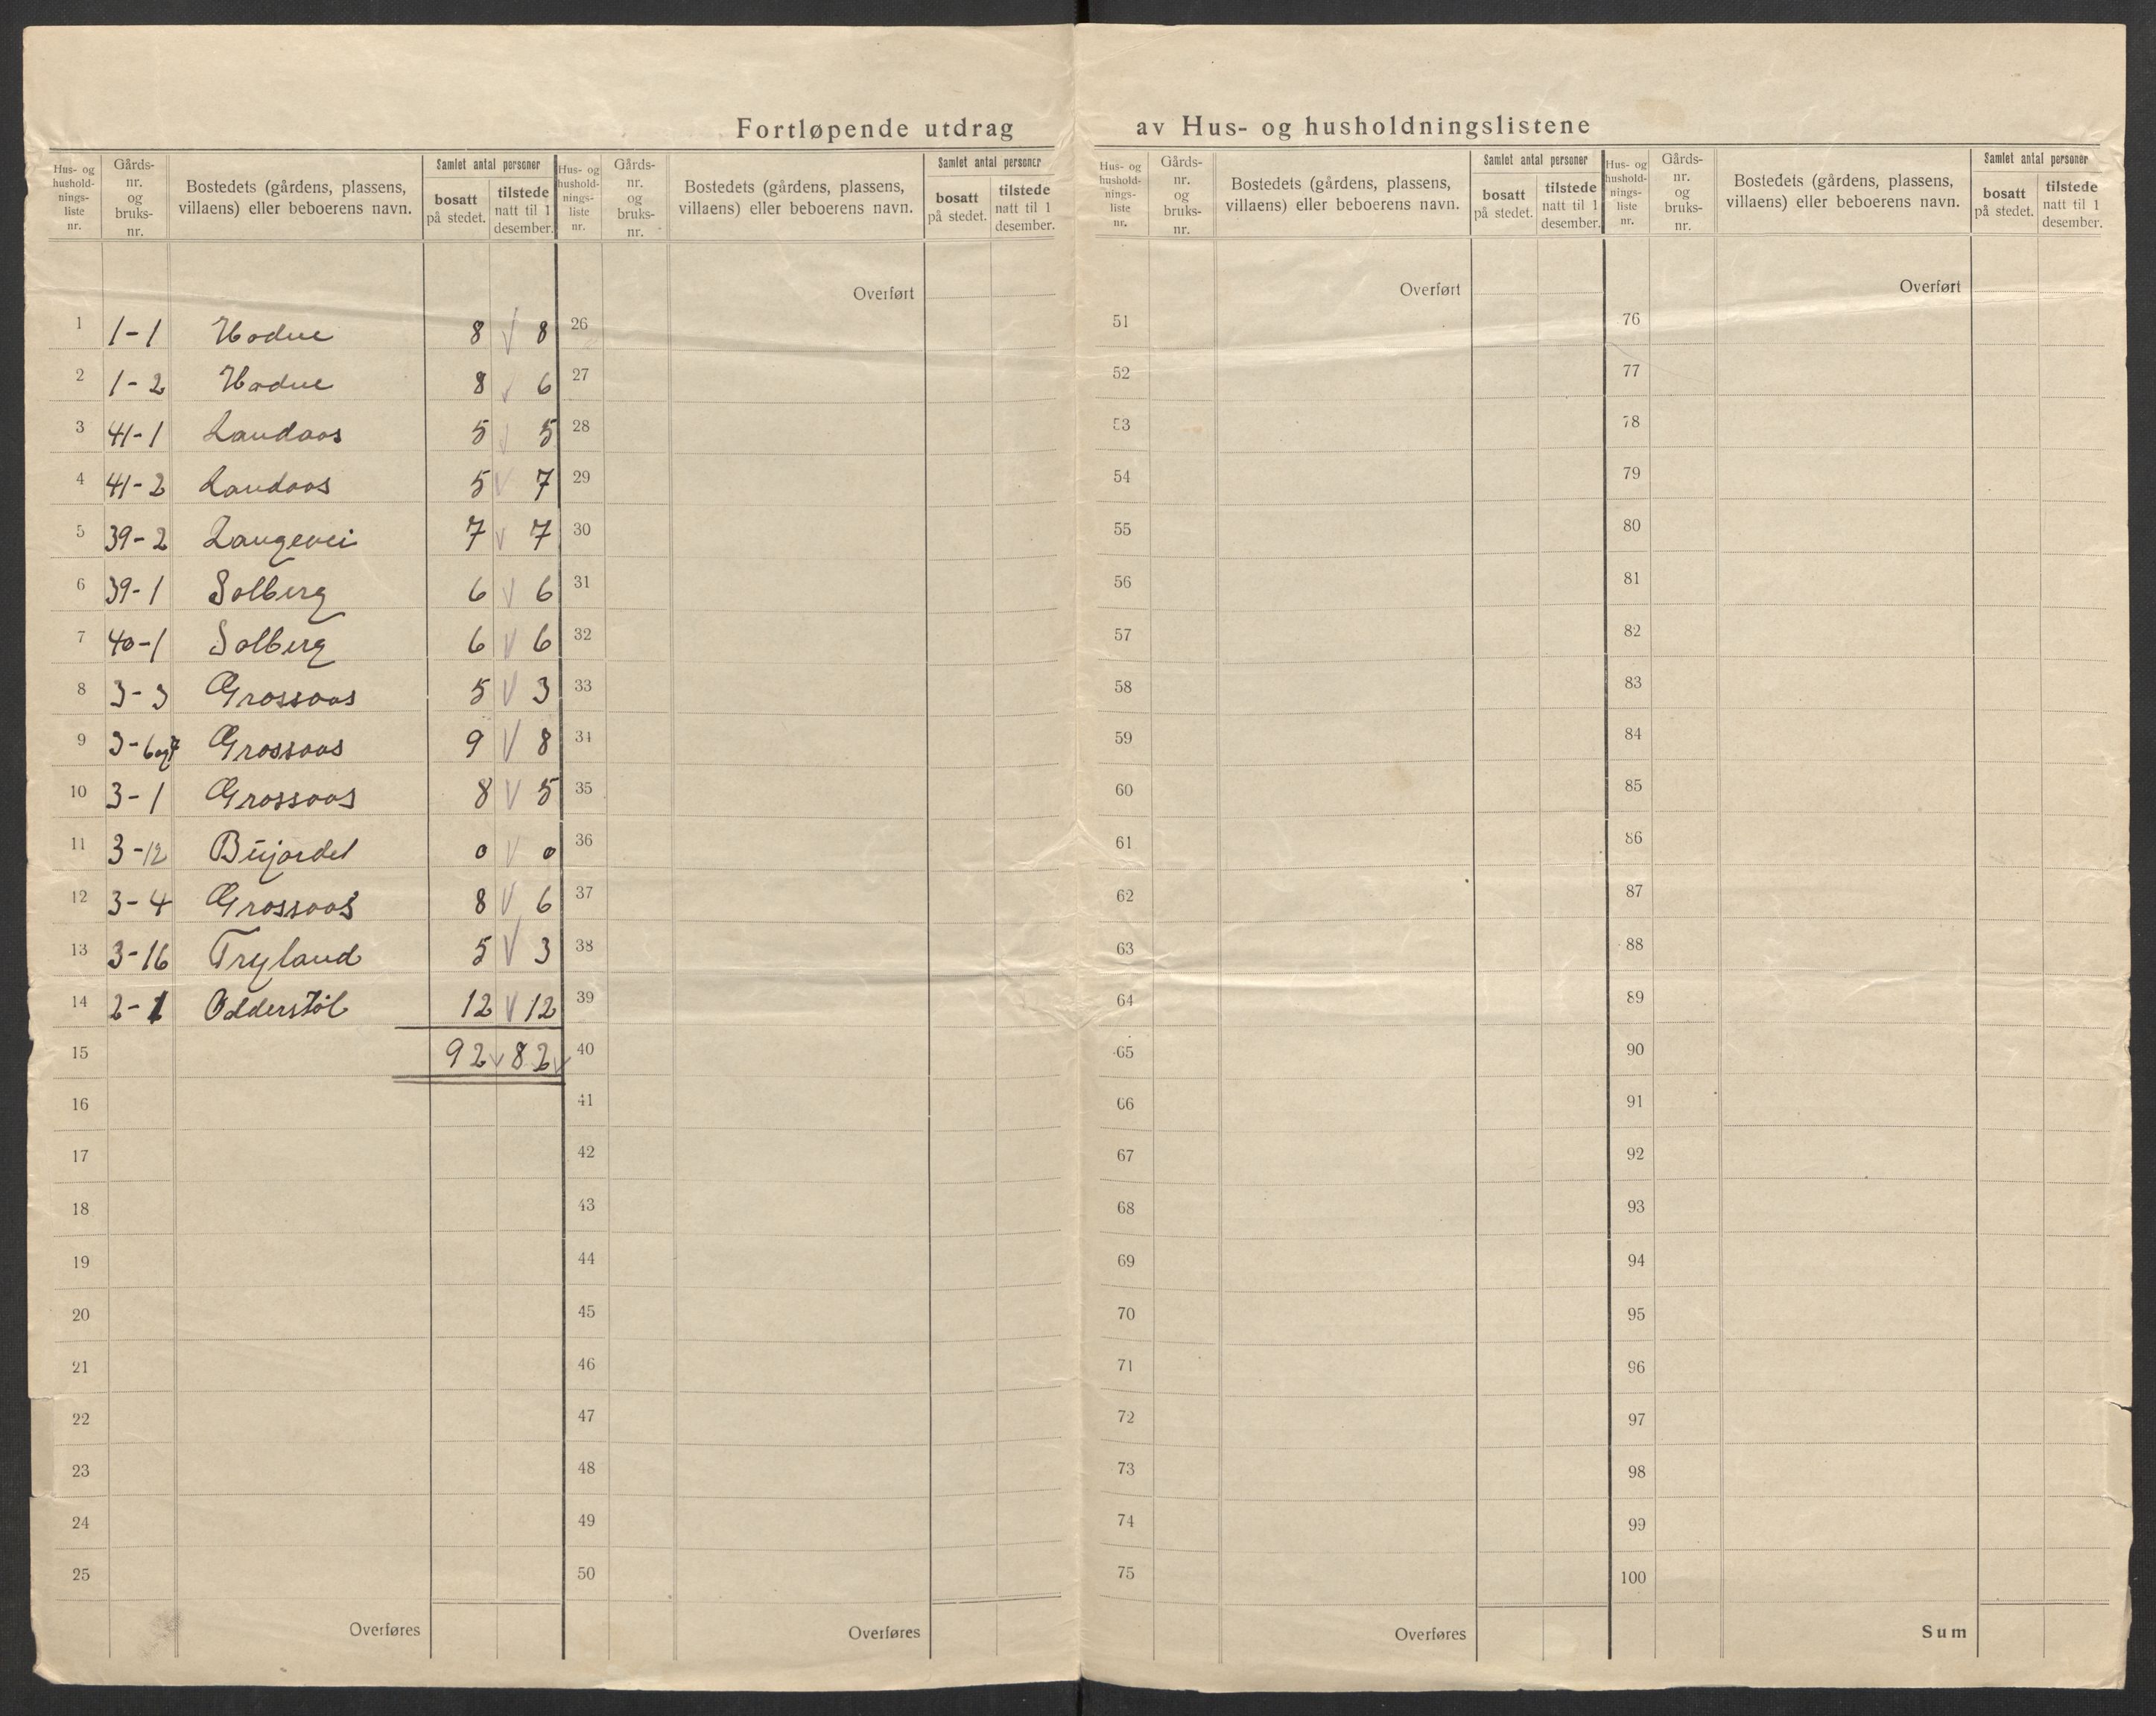 Fortløpende utdrag av Hus- og husholdningslistene
Hus- og hushold- nings- liste nr. | Gårds- nr. og bruks- nr. | Bostedets (gårdens, plassens, villaens) eller beboerens navn. | Samlet antal personer | bosatt på stedet. | tilstede natt til 1 desember.
Hus- og hushold- nings- liste nr. | Gårds- nr. og bruks- nr. | Bostedets (gårdens, plassens, villaens) eller beboerens navn. | Samlet antal personer | bosatt på stedet. | tilstede natt til 1 desember.
Hus- og hushold- nings- liste nr. | Gårds- nr. og bruks- nr. | Bostedets (gårdens, plassens, villaens) eller beboerens navn. | Samlet antal personer | bosatt på stedet. | tilstede natt til 1 desember.
Hus- og hushold- nings- liste nr. | Gårds- nr. og bruks- nr. | Bostedets (gårdens, plassens, villaens) eller beboerens navn. | Samlet antal personer | bosatt på stedet. | tilstede natt til 1 desember.
Overført Overført Overført
1 1-1 Hodne 8 √ 8 26 51 76
2 1-2 Hodne 8 √ 6 27 52 77
3 41-1 Landaas 5 √ 5 28 53 78
4 41-2 Landaas 5 √ 7 29 54 79
5 39-2 Langevei 7 √ 7 30 55 80
6 39-1 Solberg 6 √ 6 31 56 81
7 40-1 Solberg 6 √ 6 32 57 82
8 3-3 Grossaas 5 √ 3 33 58 83
9 3-6og7 Grossaas 9 √ 8 34 59 84
10 3-1 Grossaas 8 √ 5 35 60 85
11 3-12 0 √ 0 36 61 86
12 3-4 Grossaas 8 √ 6 37 62 87
13 3-16 Tryland 5 √ 3 38 63 88
14 2-1 Odderstöl 12 √ 12 39 64 89
15 92 √ 82 √ 40 65 90
16 41 66 91
17 42 67 92
18 43 68 93
19 44 69 94
20 45 70 95
21 46 71 96
22 47 72 97
23 48 73 98
24 49 74 99
25 50 75 100
Overføres Overføres Overføres Sum